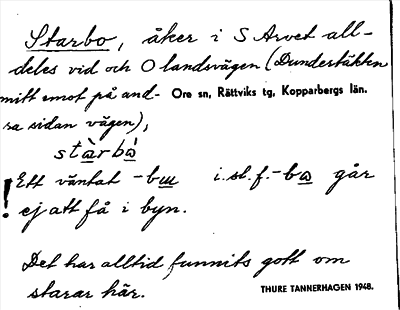 Starbo, åker i S Arvet all-
deles vid och O landsvägen (Dundertäkten
mitt emot på and- Ore sn, Rättviks tg, Kopparbergs län.
ra sidan vägen),
stàrbò
! Ett väntat -bɯ i. st. f. -bɷ går
ej att få i byn.
Det har alltid funnits gott om
starar här.
THURE TANNERHAGEN 1948.